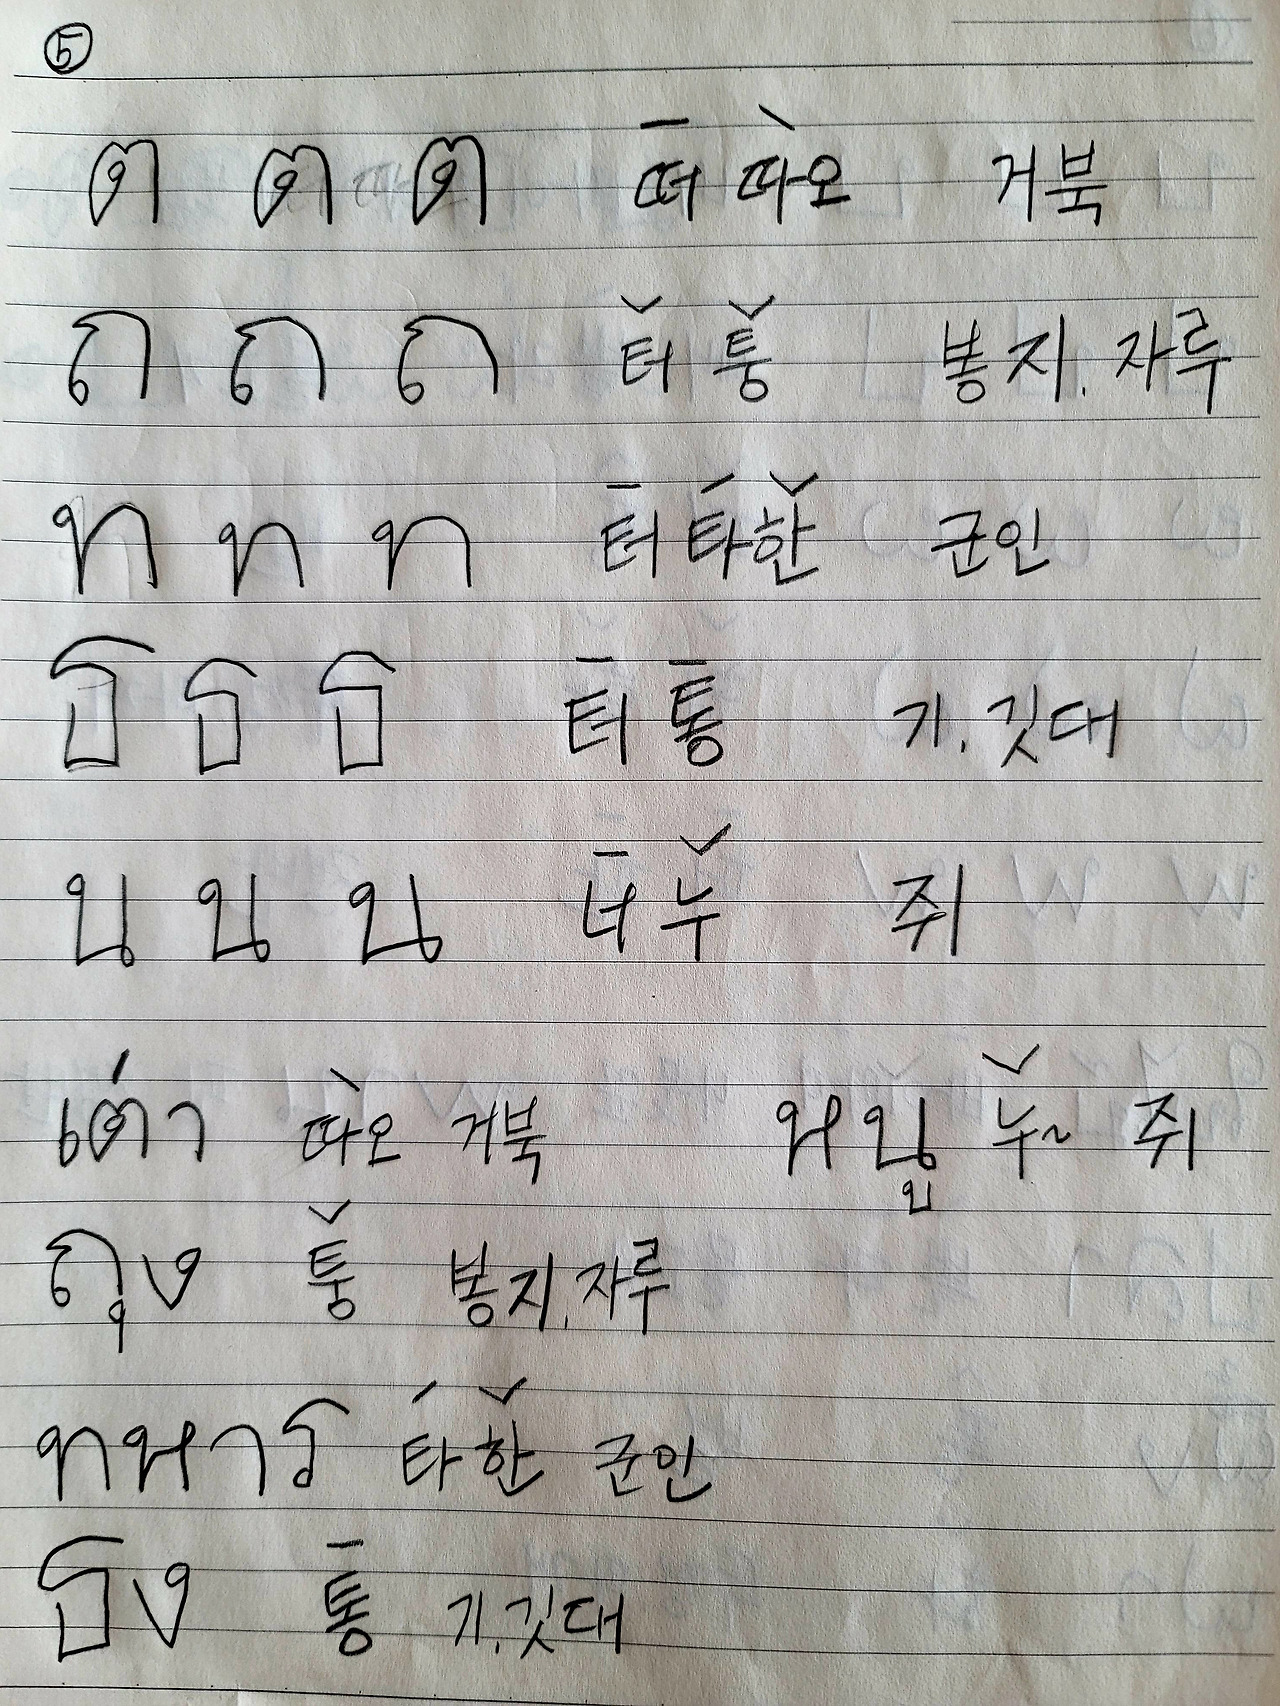 ⑤
ต ต ต 떠 따오 거북
ถ ถ ถ 터 퉁 봉지. 자루
ท ท ท 터 타한 군인
ธ ธ ธ 터 통 기. 깃대
น น น 너 누 쥐
เต่า 따오 거북 หนู 누~ 쥐
ถุง 퉁 봉지. 자루
ทหาร 타한 군인
ธง 통 기. 깃대